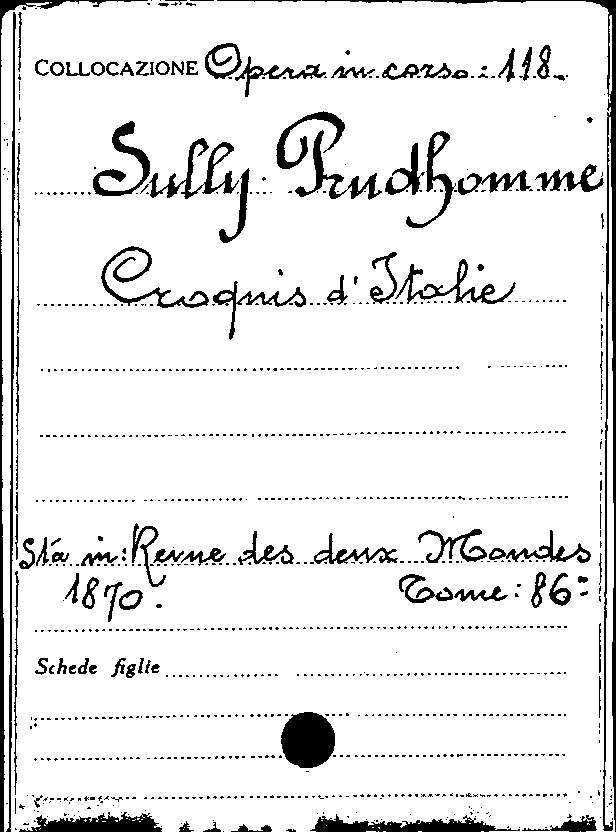 COLLOCAZIONE Opera in corso: 118.
Sully Prudhomme
Croquis d'Italie
Sta in: Revue des deux Mondes
1870. Tome: 86º
Schede figlie